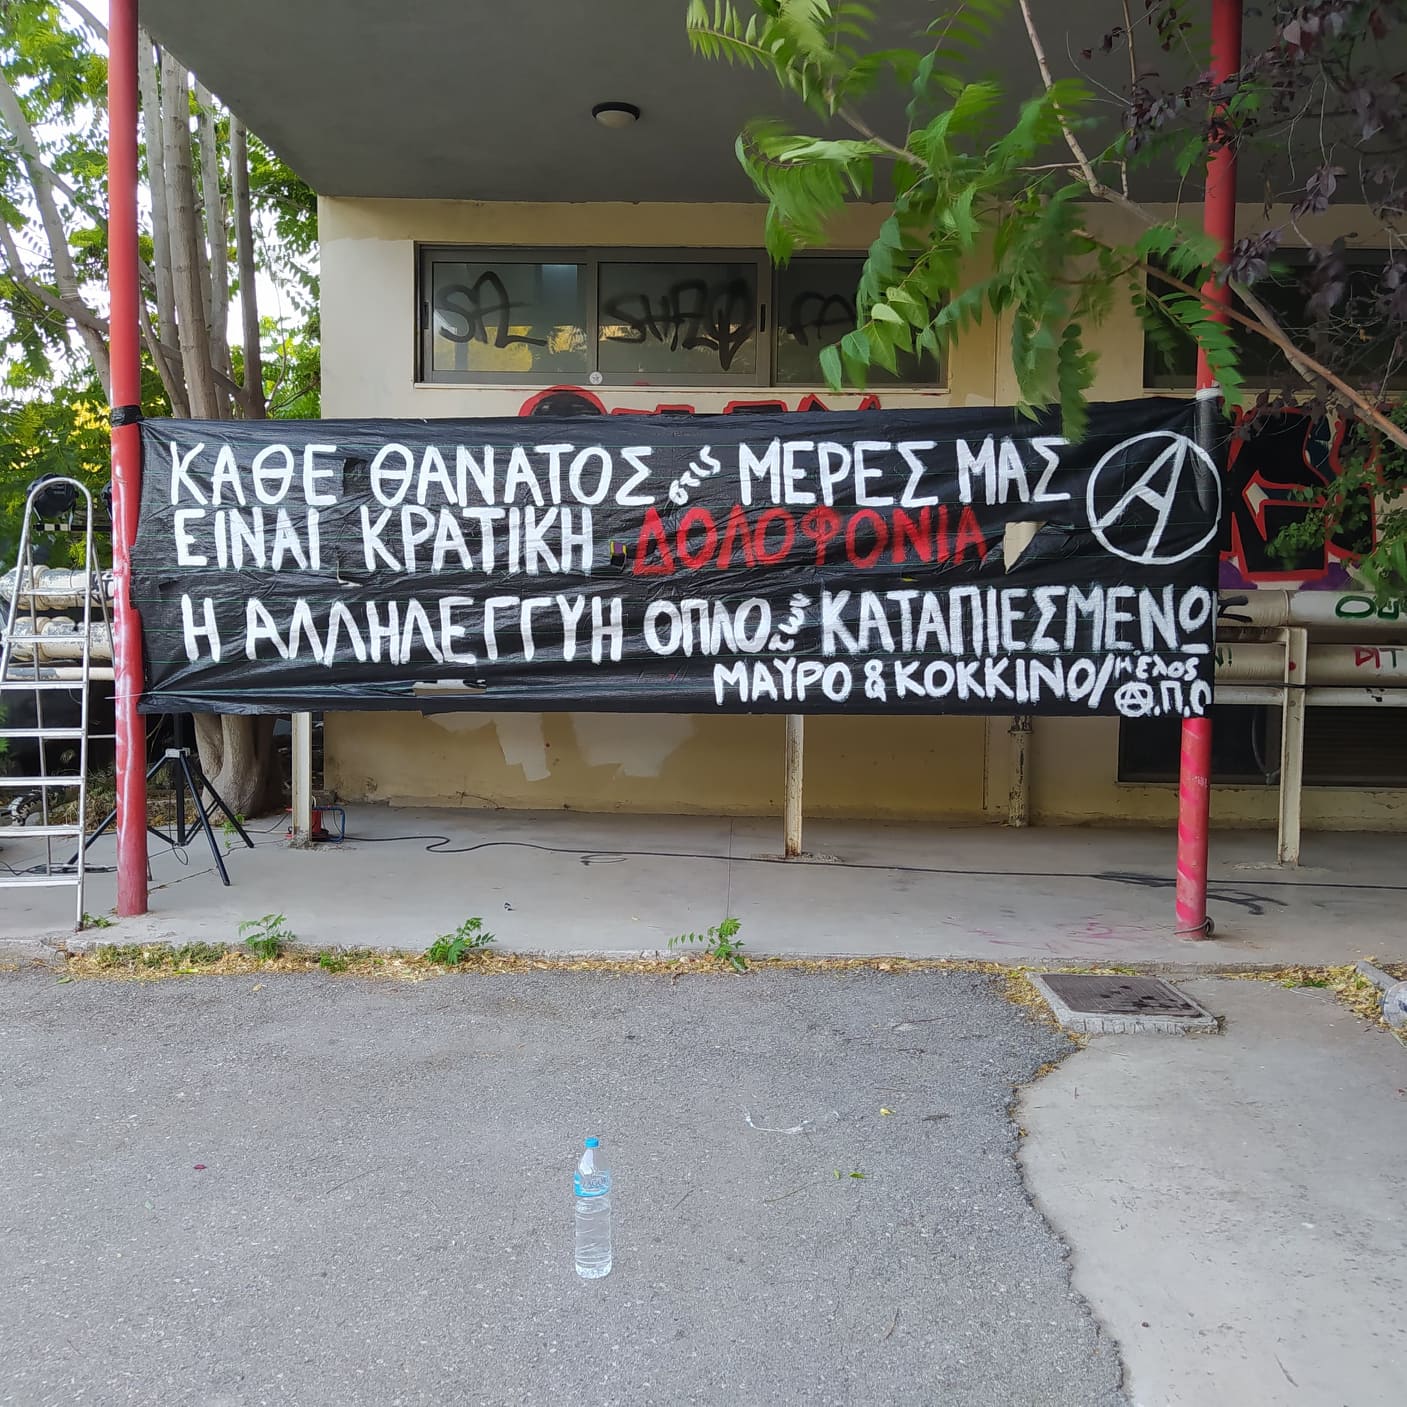 ΚΑΘΕ ΘΑΝΑΤΟΣ στις ΜΕΡΕΣ ΜΑΣ
ΕΙΝΑΙ ΚΡΑΤΙΚΗ ΔΟΛΟΦΟΝΙΑ
Η ΑΛΛΗΛΕΓΓΥΗ ΟΠΛΟ των ΚΑΤΑΠΙΕΣΜΕΝΩ
ΜΑΥΡΟ & ΚΟΚΚΙΝΟ/ μέλος
Α.Π.Ο